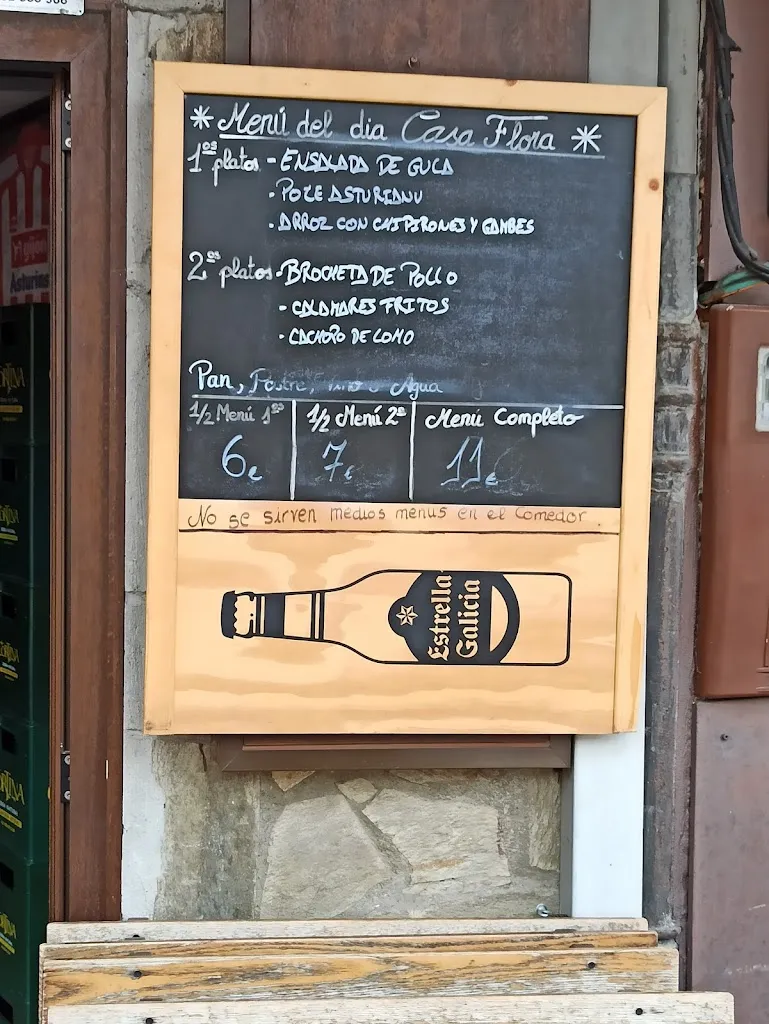 * Menú del dia Casa Flora *
1os platos - ENSALADA DE GULA
- POTE ASTURIANU
- ARROZ CON CHIPIRONES Y GAMBES
2os platos - BROCHETA DE POLLO
- CALAMARES FRITOS
- CACHOPO DE LOMO
Pan, Postre, Vino o Agua
1/2 Menú 1os
1/2 Menú 2º
Menú Completo
6€
7€
11€
No se sirven medios menus en el Comedor
Estrella
Galicia
Asturias